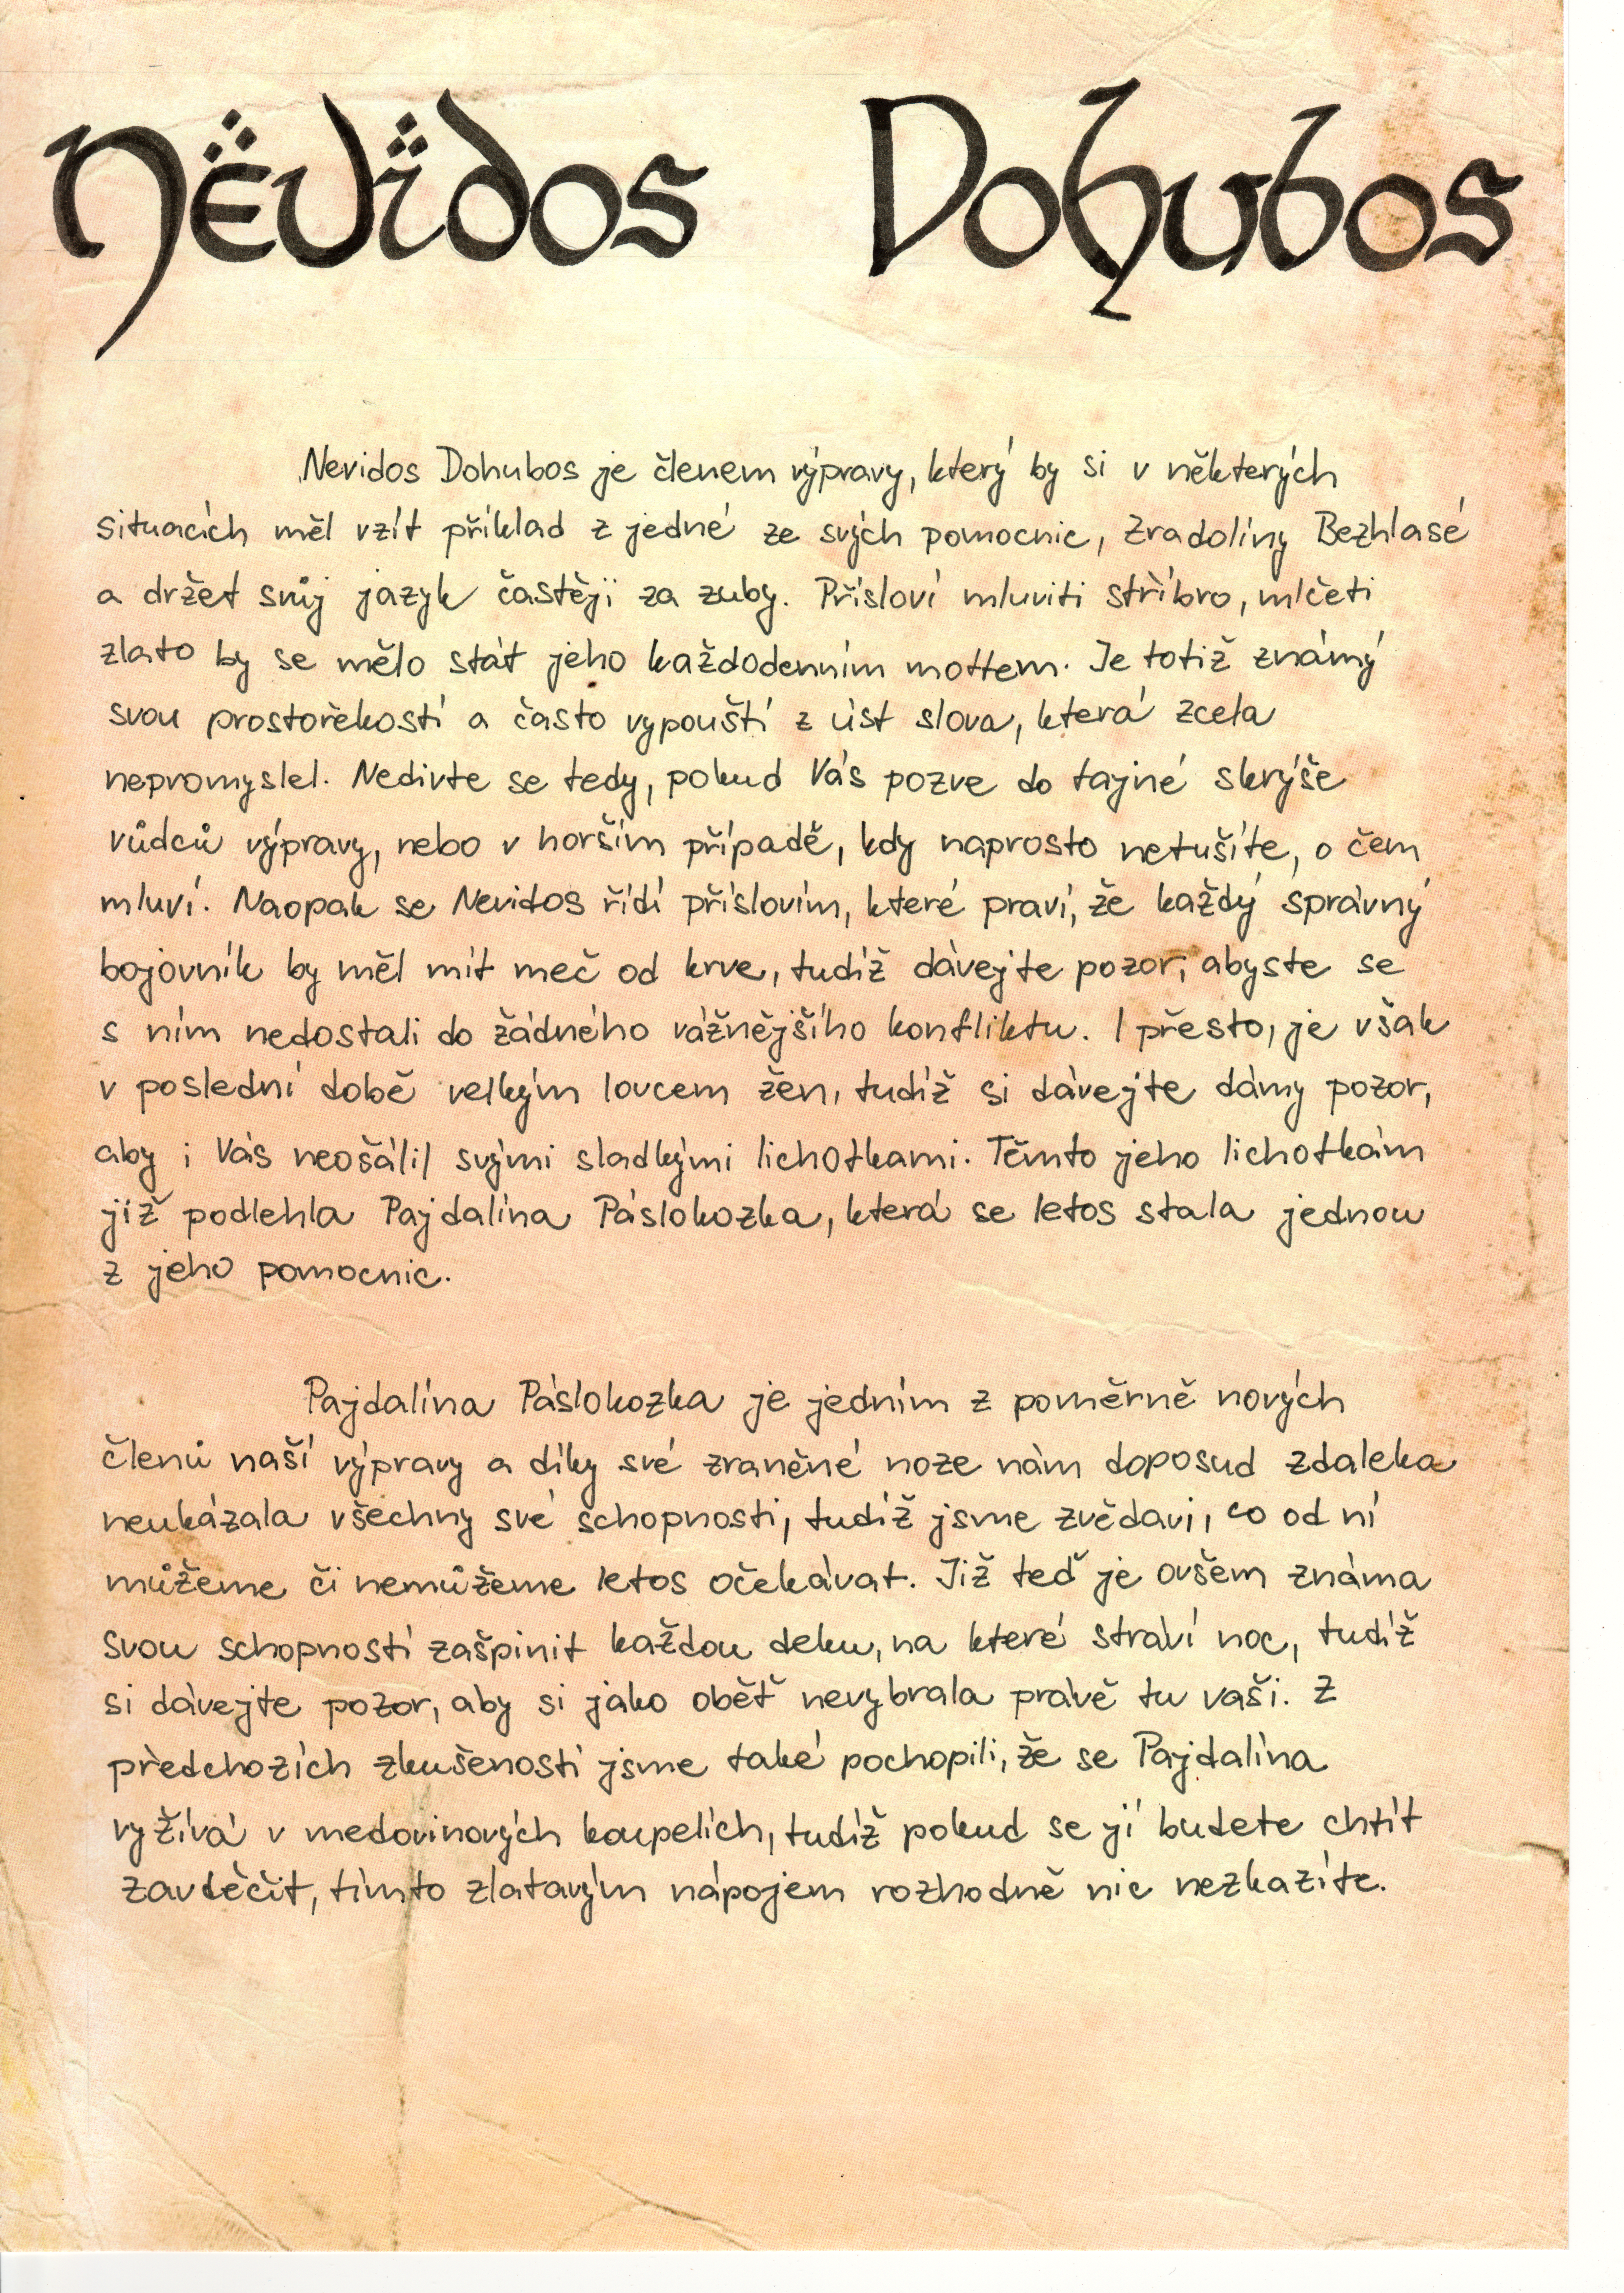 Nëvïdos Dohubos
Nevidos Dohubos je členem výpravy, který by si v některých
situacích měl vzít příklad z jedné ze svých pomocnic, Zradolíny Bezhlasé
a držet svůj jazyk častěji za zuby. Přísloví mluviti stříbro, mlčeti
zlato by se mělo stát jeho každodenním mottem. Je totiž známý
svou prostořekostí a často vypouští z úst slova, která zcela
nepromyslel. Nedivte se tedy, pokud Vás pozve do tajné skrýše
vůdců výpravy, nebo v horším případě, kdy naprosto netušíte, o čem
mluví. Naopak se Nevidos řídí příslovím, které praví, že každý správný
bojovník by měl mít meč od krve, tudíž dávejte pozor, abyste se
s ním nedostali do žádného vážnějšího konfliktu. I přesto, je však
v poslední době velkým lovcem žen, tudíž si dávejte dámy pozor,
aby i Vás neošálil svými sladkými lichotkami. Těmto jeho lichotkám
již podlehla Pajdalína Páslokozka, která se letos stala jednou
z jeho pomocnic.
Pajdalína Páslokozka je jedním z poměrně nových
členů naší výpravy a díky své zraněné noze nám doposud zdaleka
neukázala všechny své schopnosti, tudíž jsme zvědavi, co od ní
můžeme či nemůžeme letos očekávat. Již teď je ovšem známa
svou schopností zašpinit každou deku, na které stráví noc, tudíž
si dávejte pozor, aby si jako oběť nevybrala právě tu vaši. Z
předchozích zkušeností jsme také pochopili, že se Pajdalína
vyžívá v medovinových koupelích, tudíž pokud se jí budete chtít
zavděčit, tímto zlatavým nápojem rozhodně nic nezkazíte.